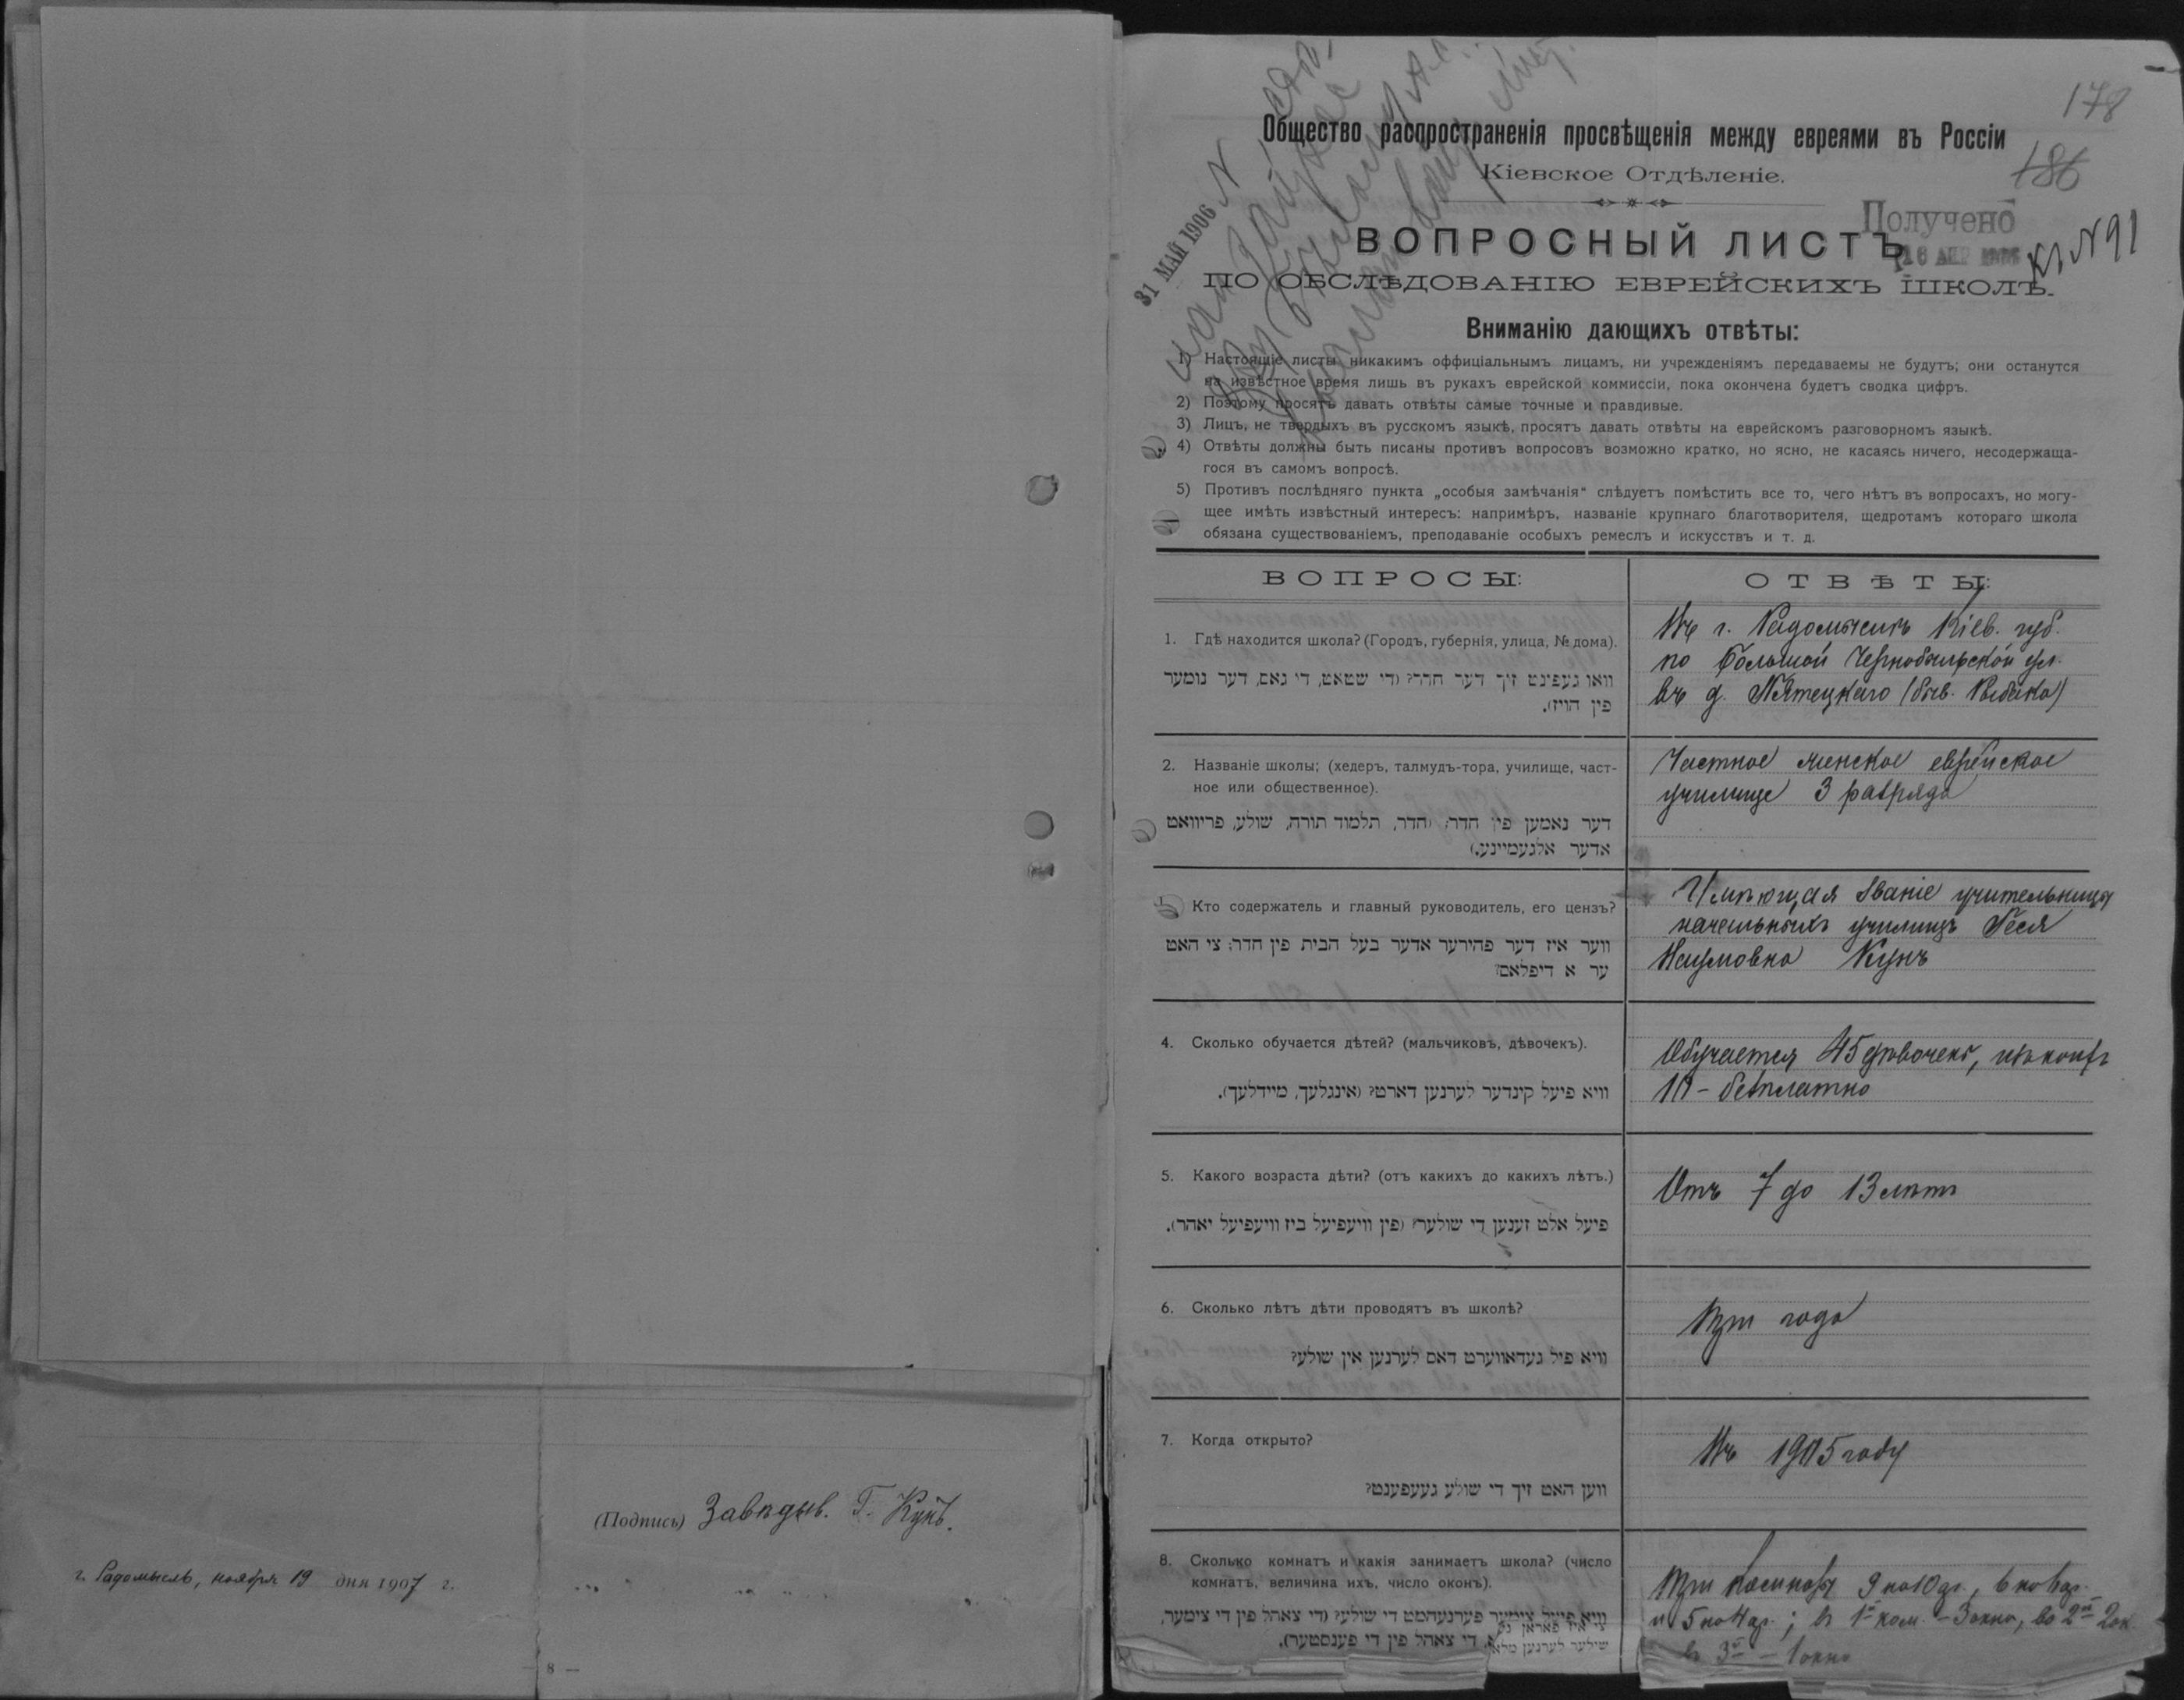 (Подпись) Завѣдыв. Г. Кунъ.
г. Радомысль, ноября 19 дня 1907 г.
8 —
178
186
Общество распространенія просвѣщенія между евреями въ Россіи
Кіевское Отдѣленіе.
31 МАЙ 1906
Получено
Къ N 91
ВОПРОСНЫЙ ЛИСТЪ
ПО ОБСЛѢДОВАНІЮ ЕВРЕЙСКИХЪ ШКОЛЪ.
Вниманію дающихъ отвѣты:
1) Настоящіе листы никакимъ оффиціальнымъ лицамъ, ни учрежденіямъ передаваемы не будутъ; они останутся
на извѣстное время лишь въ рукахъ еврейской коммиссіи, пока окончена будетъ сводка цифръ.
2) Поэтому просятъ давать отвѣты самые точные и правдивые.
3) Лицъ, не твердыхъ въ русскомъ языкѣ, просятъ давать отвѣты на еврейскомъ разговорномъ языкѣ.
4) Отвѣты должны быть писаны противъ вопросовъ возможно кратко, но ясно, не касаясь ничего, несодержаща-
гося въ самомъ вопросѣ.
5) Противъ послѣдняго пункта „особыя замѣчанія“ слѣдуетъ помѣстить все то, чего нѣтъ въ вопросахъ, но могу-
щее имѣть извѣстный интересъ: напримѣръ, названіе крупнаго благотворителя, щедротамъ котораго школа
обязана существованіемъ, преподаваніе особыхъ ремеслъ и искусствъ и т. д.
ВОПРОСЫ:
ОТВѢТЫ:
1. Гдѣ находится школа? (Городъ, губернія, улица, № дома).
וואו געפינט זיך דער חדר? (די שטאט, די גאס, דער נומער
פין הויז).
Въ г. Радомыслѣ Кіев. губ.
по Большой Чернобыльской ул.
въ д. Пятецкаго (быв. Рыбака)
2. Названіе школы; (хедеръ, талмудъ-тора, училище, част-
ное или общественное).
דער נאמען פין חדר; (חדר, תלמוד תורה, שולע, פריוואט
אדער אלגעמיינע.)
Частное женское еврейское
училище 3 разряда
Кто содержатель и главный руководитель, его цензъ?
ווער איז דער פהירער אדער בעל הבית פין חדר; צי האט
ער א דיפלאם?
Имѣющая званіе учительницы
начальныхъ училищъ Геся
Наумовна Кунъ
4. Сколько обучается дѣтей? (мальчиковъ, дѣвочекъ).
וויא פיעל קינדער לערנען דארט? (אינגלעך, מיידלעך).
Обучается 45 дѣвочекъ, изъ коихъ
10 – безплатно
5. Какого возраста дѣти? (отъ какихъ до какихъ лѣтъ.)
פיעל אלט זענען די שולער? (פין וויעפיעל ביז וויעפיעל יאהר).
Отъ 7 до 13 лѣтъ
6. Сколько лѣтъ дѣти проводятъ въ школѣ?
וויא פיל געדאווערט דאס לערנען אין שולע?
Три года
7. Когда открыто?
ווען האט זיך די שולע געעפענט?
Въ 1905 году
8. Сколько комнатъ и какія занимаетъ школа? (число
комнатъ, величина ихъ, число оконъ).
וויא פיעל צימער פערנעהמט די שולע? (די צאהל פין די צימער,
די צאהל פין די פענסטער).
Три комнаты 9 на 10 ар., 6 на 6 ар.
и 5 на 4 ар.; въ 1й ком. – 3 окна, во 2й 2 ок.
въ 3й – 1 окно